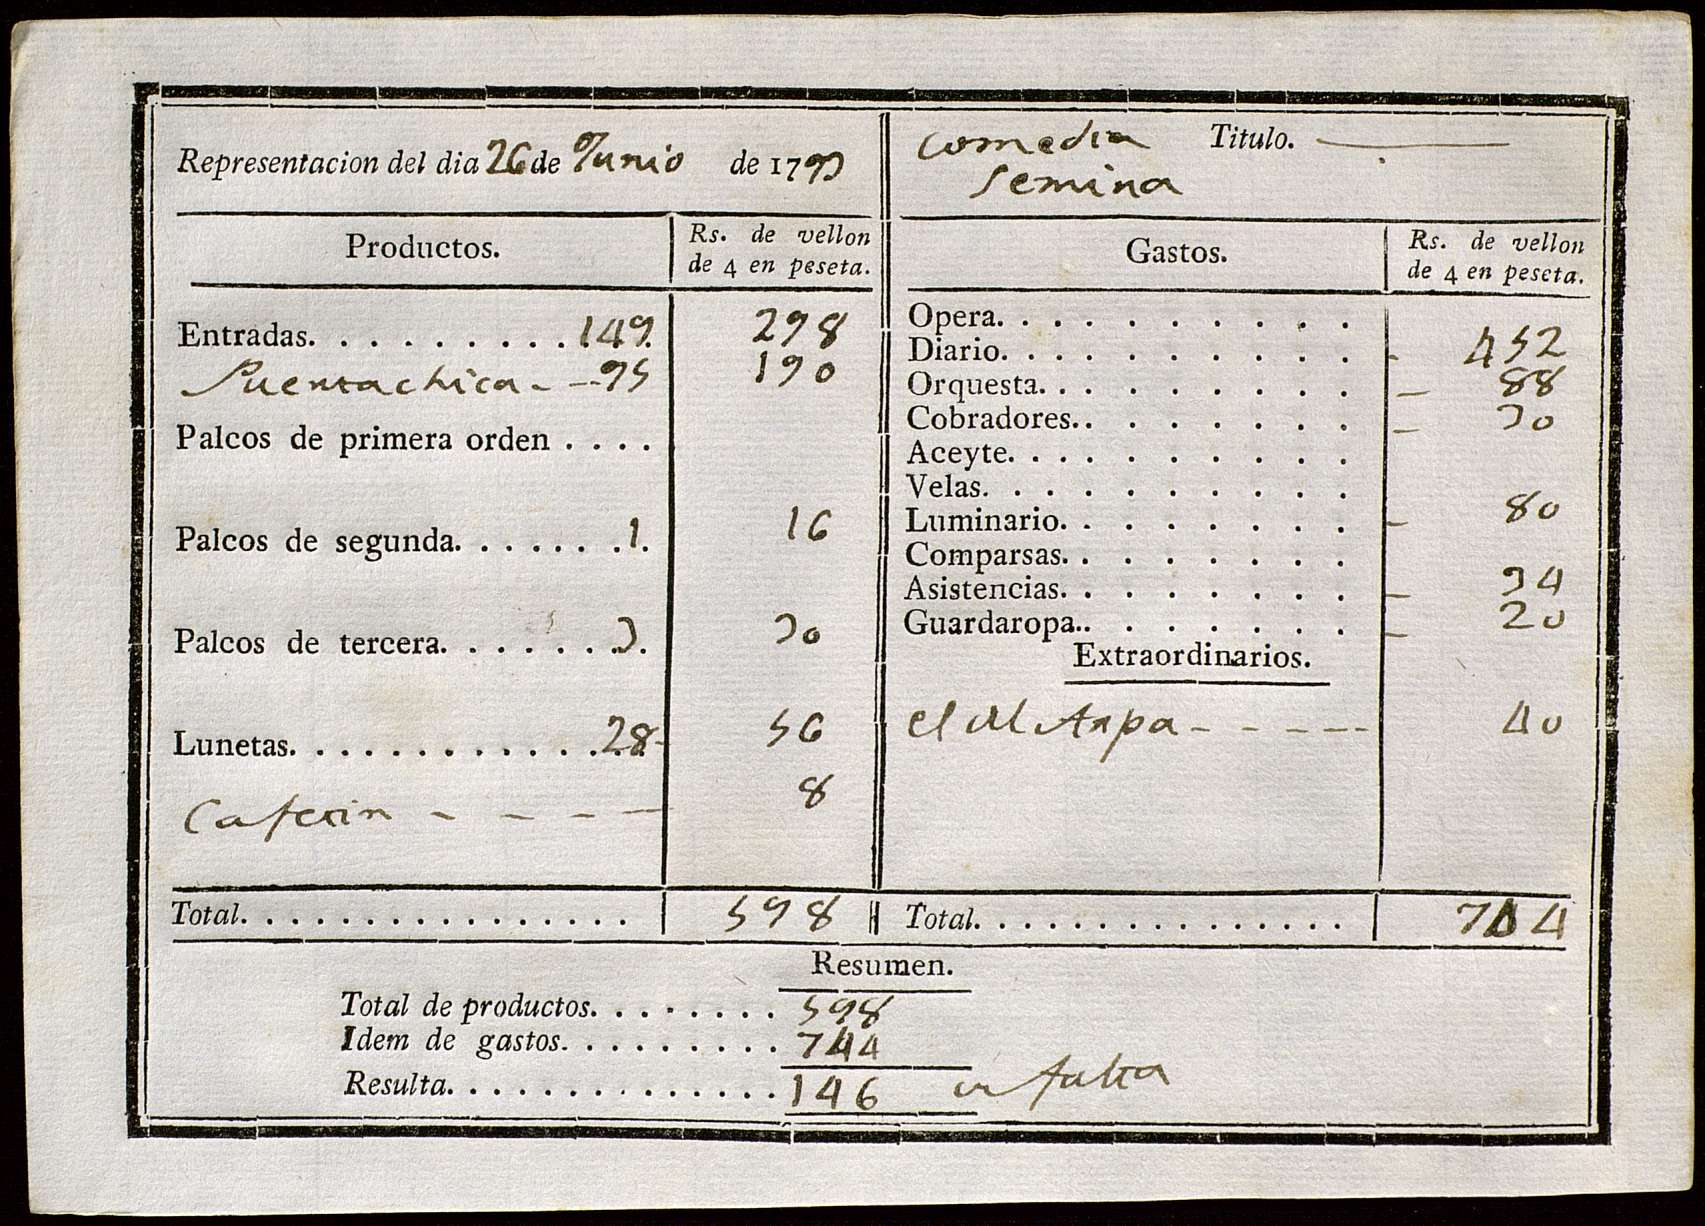 Representacion del dia 26 de Junio de 1793
comedia Titulo.
Semina
Productos. Rs. de vellon de 4 en peseta.
Entradas. . . . . . . . . . 149. 298
Puertachica - -- 95 190
Palcos de primera orden . . . .
Palcos de segunda. . . . . . . 1. 16
Palcos de tercera. . . . . . . 3. 30
Lunetas. . . . . . . . . . . . 28 - 56
Cafetin - - - - 8
Total. . . . . . . . . . . . . . . . 598
Gastos. Rs. de vellon de 4 en peseta.
Opera. . . . . . . . . .
Diario. . . . . . . . . . - 452
Orquesta. . . . . . . . . - 88
Cobradores.. . . . . . . - 30
Aceyte. . . . . . . . . .
Velas. . . . . . . . . .
Luminario. . . . . . . . - 80
Comparsas. . . . . . . .
Asistencias. . . . . . . . - 34
Guardaropa.. . . . . . . - 20
Extraordinarios.
el del Arpa - - - - - 40
Total. . . . . . . . . . . . . . . . 744
Resumen.
Total de productos. . . . . . . . 598
Idem de gastos. . . . . . . . . 744
Resulta. . . . . . . . . . . . . . 146 en falta